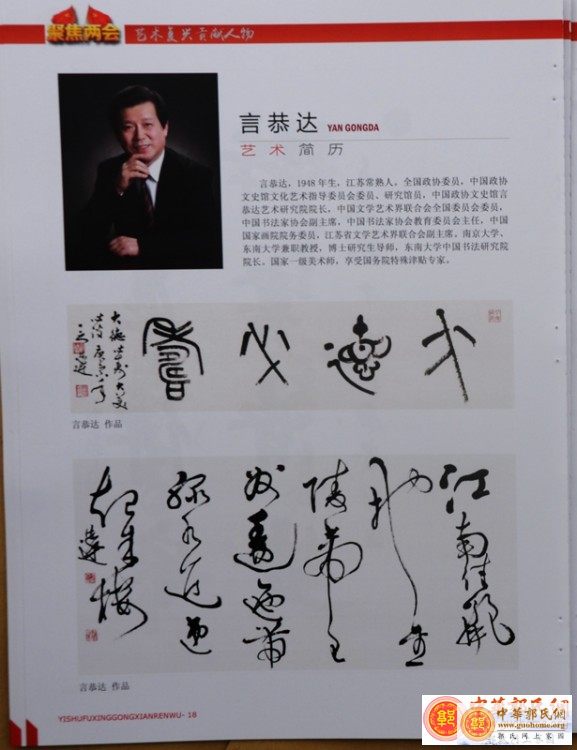 聚焦两会 艺术复兴贡献人物
言恭达 YAN GONGDA
艺术简历
言恭达，1948年生，江苏常熟人，全国政协委员，中国政协
文史馆文化艺术指导委员会委员、研究馆员，中国政协文史馆言
恭达艺术研究院院长，中国文学艺术界联合会全国委员会委员，
中国书法家协会副主席，中国书法家协会教育委员会主任，中国
国家画院院务委员，江苏省文学艺术界联合会副主席。南京大学、
东南大学兼职教授，博士研究生导师，东南大学中国书法研究院
院长。国家一级美术师，享受国务院特殊津贴专家。
言恭达 作品
江南佳麗
地金
陵帝王
州逶迤帶
綠水迢遞
起朱樓
言恭达 作品
YISHUFUXINGGONGXIANRENWU- 18
中華郭氏網
www.guohome.org
郭氏网上家园